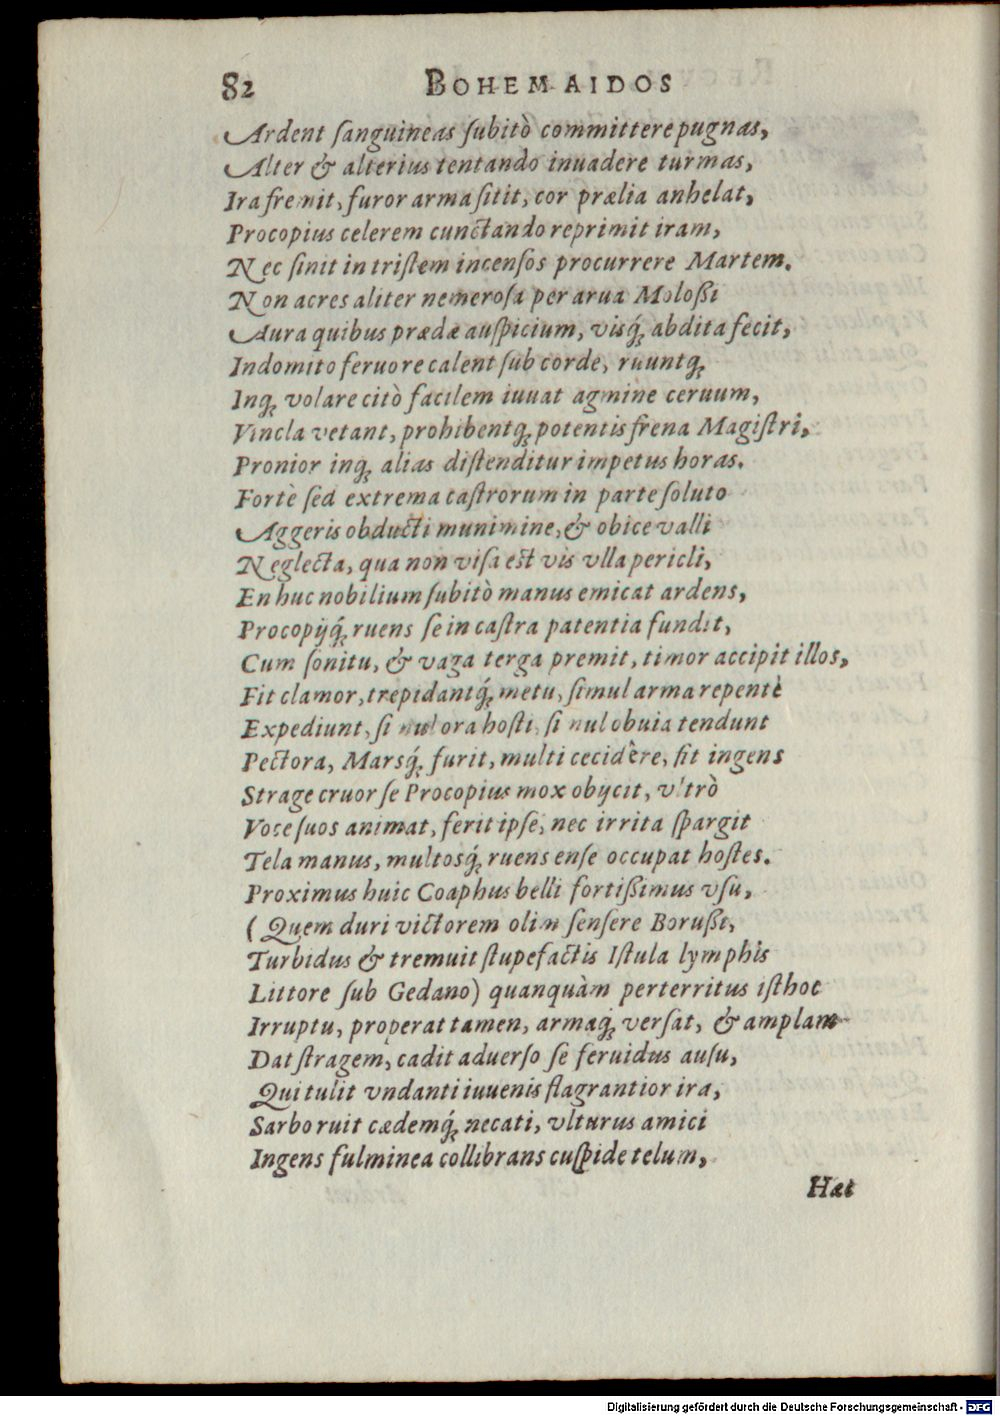 82 BOHEMAIDOS
Ardent ſanguineas ſubitò committere pugnas,
Alter & alterius tentando inuadere turmas,
Ira fremit, furor arma ſitit, cor prælia anhelat,
Procopius celerem cunctando reprimit iram,
Nec ſinit in triſtem incenſos procurrere Martem.
Non acres aliter nemeroſa per arua Moloßi
Aura quibus prædæ auſpicium, visq́; abdita fecit,
Indomito feruore calent ſub corde, ruuntq;
Inq; volare citò facilem iuuat agmine ceruum,
Vincla vetant, prohibentq; potentis frena Magiſtri,
Pronior inq́; alias diſtenditur impetus horas.
Fortè ſed extrema caſtrorum in parte ſoluto
Aggeris obducti munimine, & obice valli
Neglecta, qua non viſa est vis vlla pericli,
En huc nobilium ſubitò manus emicat ardens,
Procopijq́; ruens ſe in caſtra patentia fundit,
Cum ſonitu, & vaga terga premit, timor accipit illos,
Fit clamor, trepidantq́; metu, ſimul arma repentè
Expediunt, ſimul ora hoſti, ſimul obuia tendunt
Pectora, Marsq́; furit, multi cecidêre, fit ingens
Strage cruor ſe Procopius mox obijcit, vltrò
Voce ſuos animat, ferit ipſe, nec irrita ſpargit
Tela manus, multosq́; ruens enſe occupat hoſtes.
Proximus huic Coaphus belli fortißimus vſu,
(Quem duri victorem olim ſenſere Borußi,
Turbidus & tremuit ſtupefactis Iſtula lymphis
Littore ſub Gedano) quanquàm perterritus iſthoc
Irruptu, properat tamen, armaq́; verſat, & amplam
Dat ſtragem, cadit aduerſo ſe feruidus auſu,
Qui tulit vndanti iuuenis flagrantior ira,
Sarbo ruit cædemq́; necati, vlturus amici
Ingens fulminea collibrans cuſpide telum,
Hæc
Digitalisierung gefördert durch die Deutsche Forschungsgemeinschaft - DFG